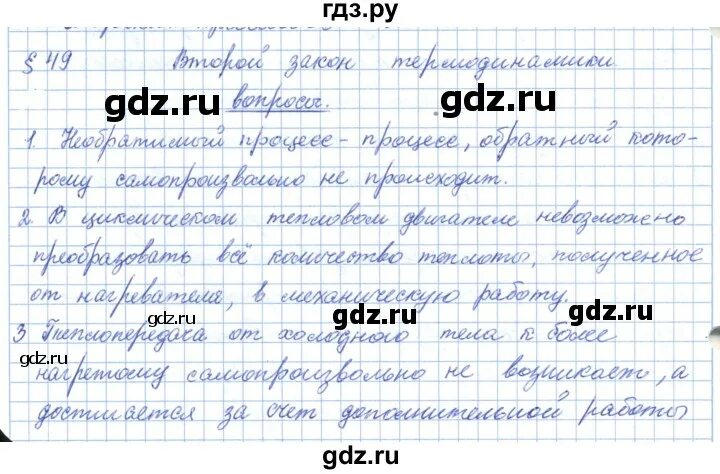 гдз.ру
§ 49 Второй закон термодинамики
gdz.ru gdz.ru
вопросы.
1. Необратимый процесс - процесс, обратный кото-
рому самопроизвольно не происходит.
gdz.ru gdz.ru
2. В циклическом тепловом двигателе невозможно
преобразовать всё количество теплоты, полученное
от нагревателя, в механическую работу.
gdz.ru gdz.ru
3 Теплопередача от холодного тела к более
gdz.ru
нагретому самопроизвольно не возникает, а
достигается за счет дополнительной работы
gdz.ru gdz.ru